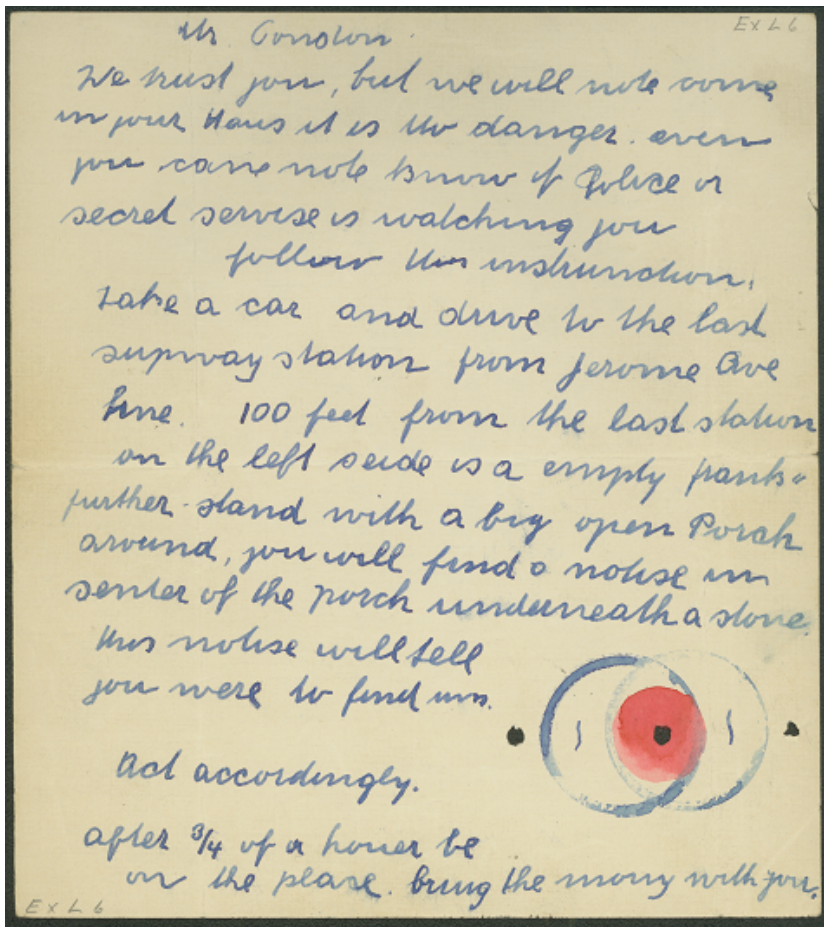 Mr Condon.
Ex L 6
We trust you, but we will note come
in your Haus it is tho danger. even
you cane note know if Police or
secret servise is watching you
follow this instrunction.
Take a car and drive to the last
supway station from Jerome Ave
line. 100 feet from the last station
on the left seide is a empty frank-
further-stand with a big open Porch
around, you will find a notise in
senter of the porch underneath a stone.
this notise will tell
you were to find uns.
Act accordingly.
after 3/4 of a houer be
on the place. bring the mony with you.
Ex L 6